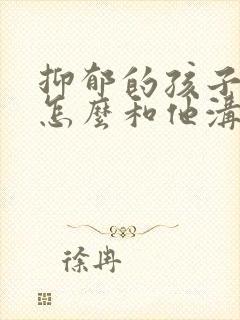 抑郁的孩子
怎麼和他溝
徐冉